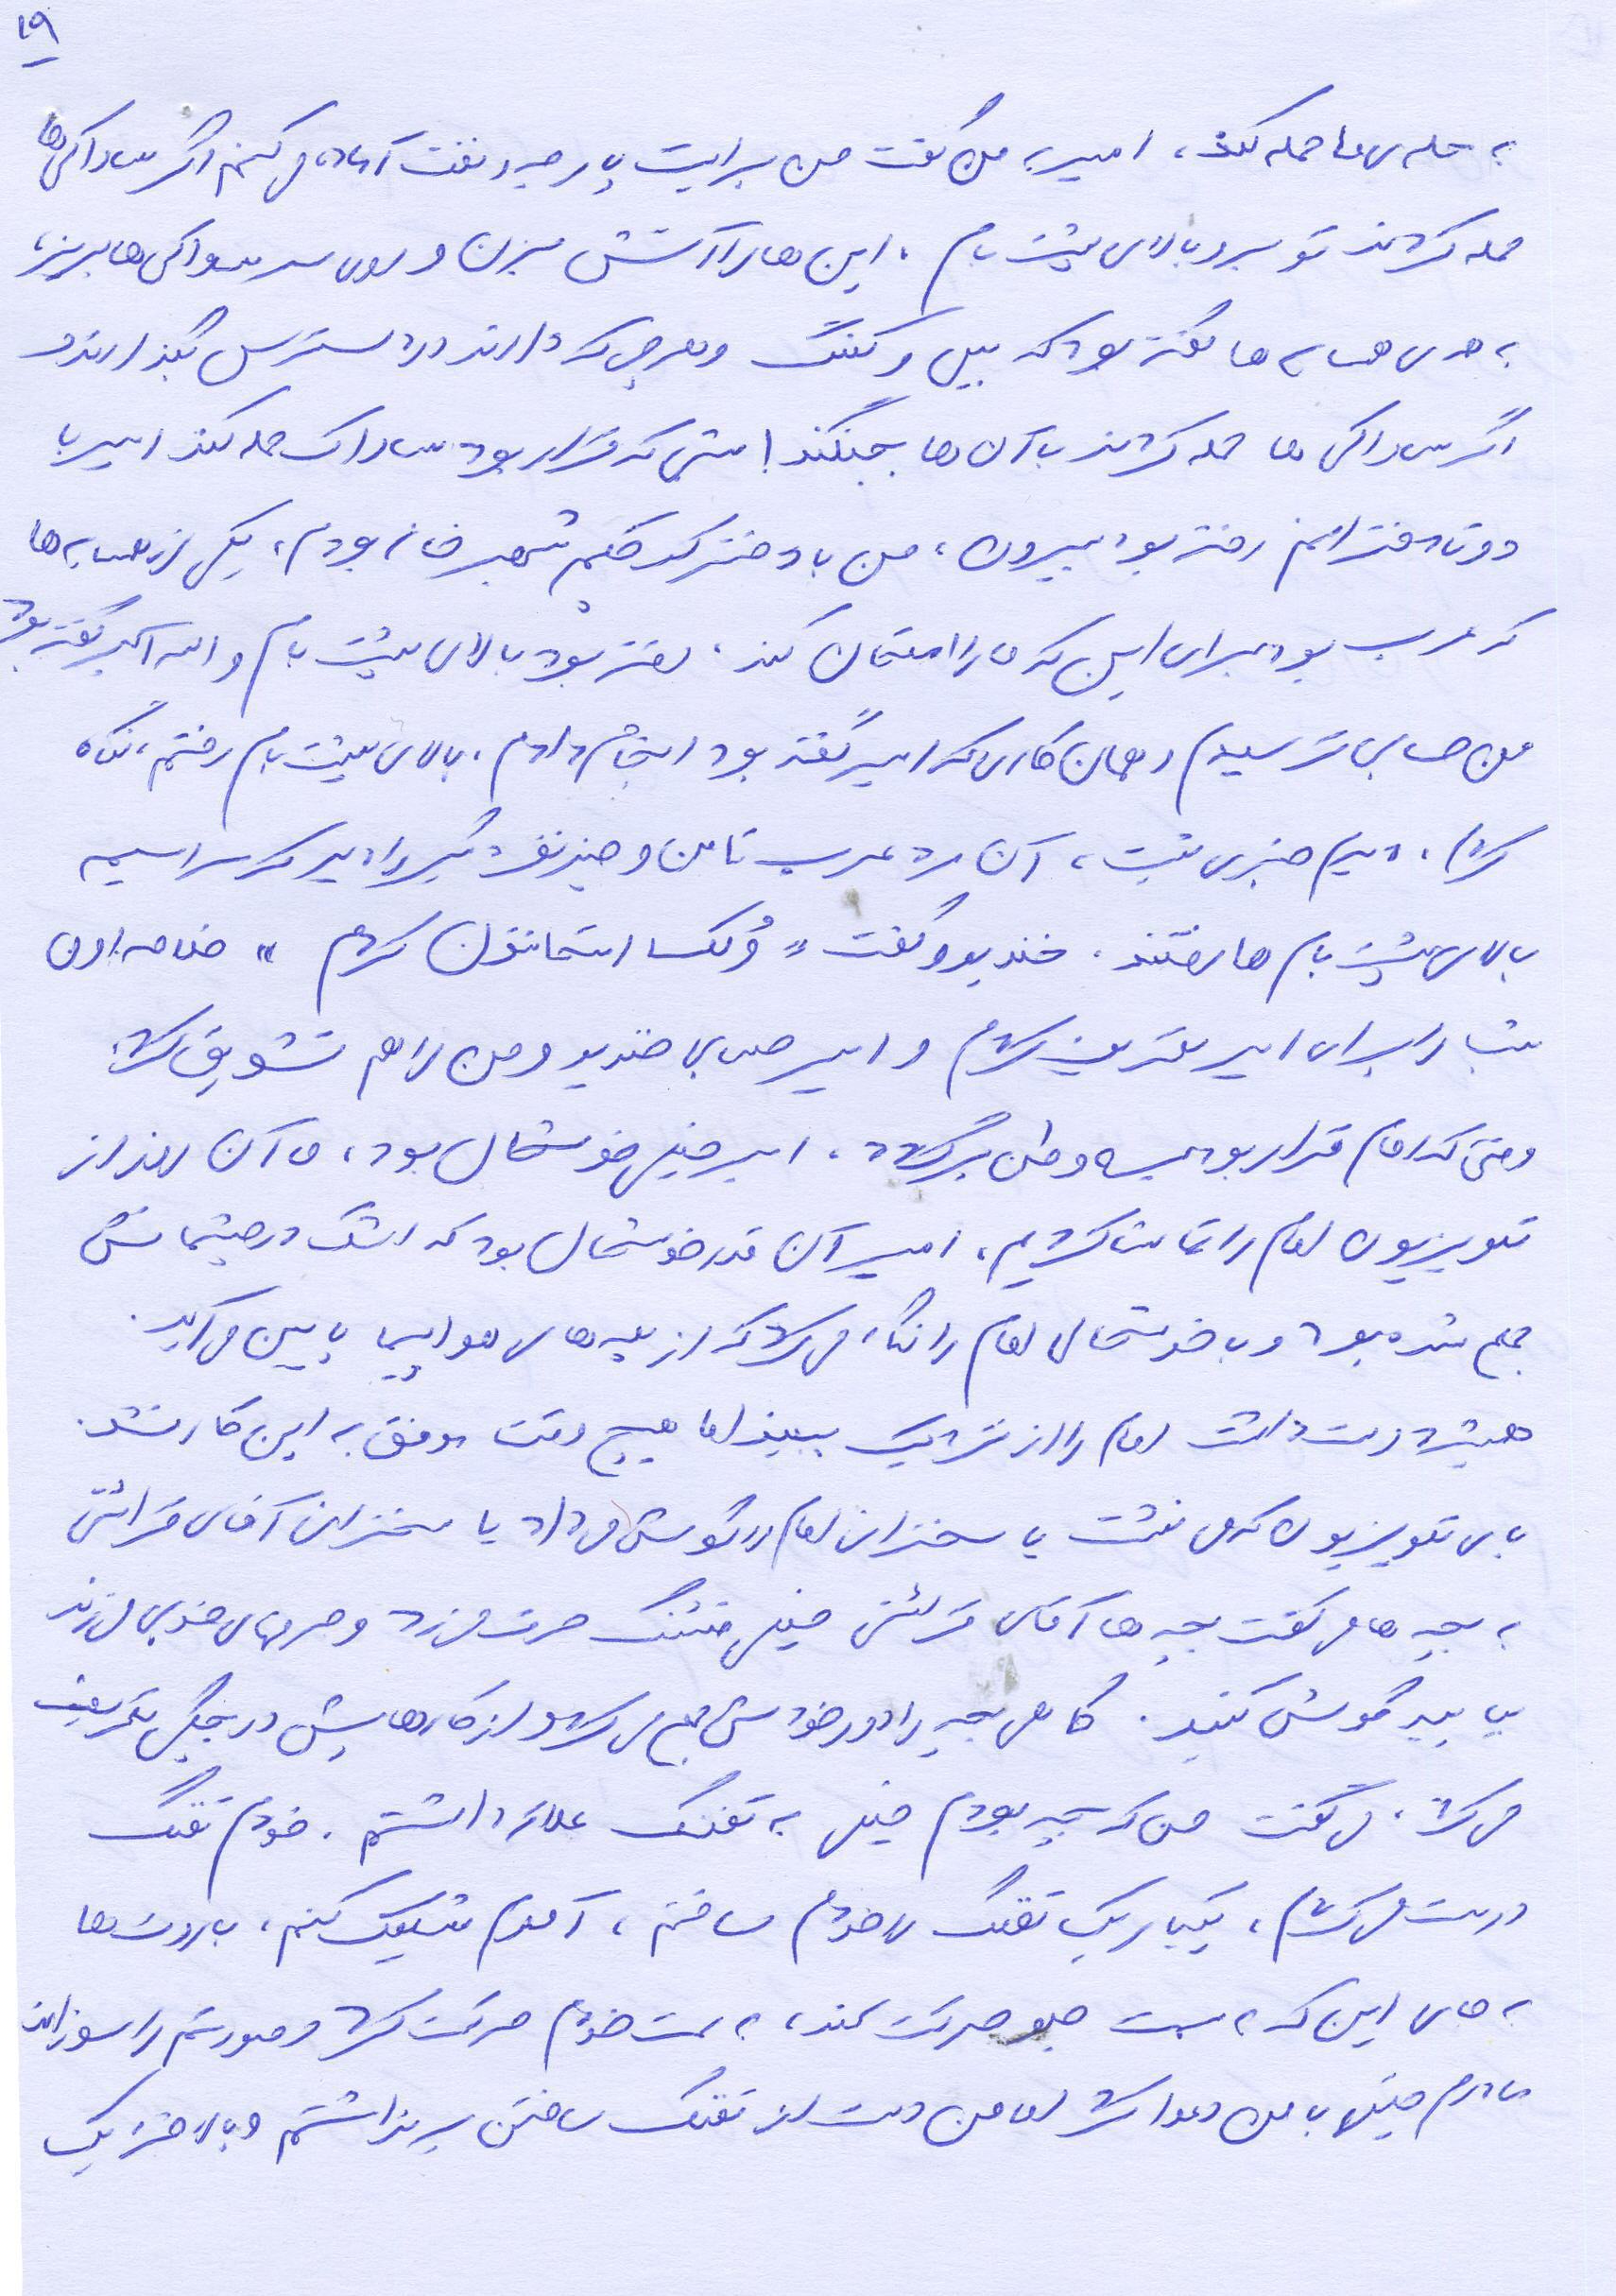 ۱۹
به محله‌ی ما حمله کنند، امیر به من گفت من برایت پارچه و نفت آماده می‌کنم اگر ساواکی‌ها
حمله کردند تو برو بالای پشت بام، این‌ها را آتش بزن و روی سر ساواکی‌ها بریز،
به همه‌ی همسایه‌ها گفته بود که بیل و کلنگ و هرچی که دارند در دسترس بگذارند و
اگر ساواکی‌ها حمله کردند با آن‌ها بجنگند! شبی که قرار بود ساواک حمله کند امیر با
دو تا دخترانم رفته بود بیرون، من با دختر کوچکم تنها بودم، یکی از همسایه‌ها
که عرب بود برای این که ما را امتحان کند، رفته بود بالای پشت بام و الله اکبر گفته بود
من حسابی ترسیدم و همان کاری که امیر گفته بود انجام دادم، بالای پشت بام رفتم، نگاه
کردم، دیدم خبری نیست، آن مرد عرب تا من و چند نفر دیگر را دید که سراسیمه
بالای پشت بام‌ها رفتند. خندید و گفت «وُلکسا امتحانتون کردم» خلاصه اون
شب را برای امیر تعریف کردم و امیر حسابی خندید و من را هم تشویق کرد.
وقتی که امام قرار بود به وطن برگردد، امیر خیلی خوشحال بود، ما آن روز از
تلویزیون امام را تماشا کردیم، امیر آن قدر خوشحال بود که اشک در چشمانش
جمع شده بود و با خوشحالی امام را نگاه می‌کرد که از پله‌های هواپیما پایین می‌آید.
همیشه دوست داشت امام را از نزدیک ببیند اما هیچ وقت موفق به این کار نشد.
پای تلویزیون که می‌نشست یا سخنرانی امام را گوش می‌داد یا سخنرانی آقای قرائتی
به بچه‌ها می‌گفت بچه‌ها آقای قرائتی خیلی قشنگ حرف می‌زند و حرفهای خوبی می‌زند
بیایید گوش کنید. گاهی بچه را دور خودش جمع می‌کرد و از کارهایش در بچگی تعریف
می‌کرد، می‌گفت من که بچه بودم خیلی به تفنگ علاقه داشتم. خودم تفنگ
درست می‌کردم، یکبار یک تفنگ را خودم ساختم، آمدم شلیک کنم، باروت‌ها
به جای این که به سمت جلو حرکت کند، به سمت خودم حرکت کرد و صورتم را سوزاند
مادرم خیلی با من دعوا کرد اما من دست از تفنگ ساختن برنداشتم و بالاخره یک